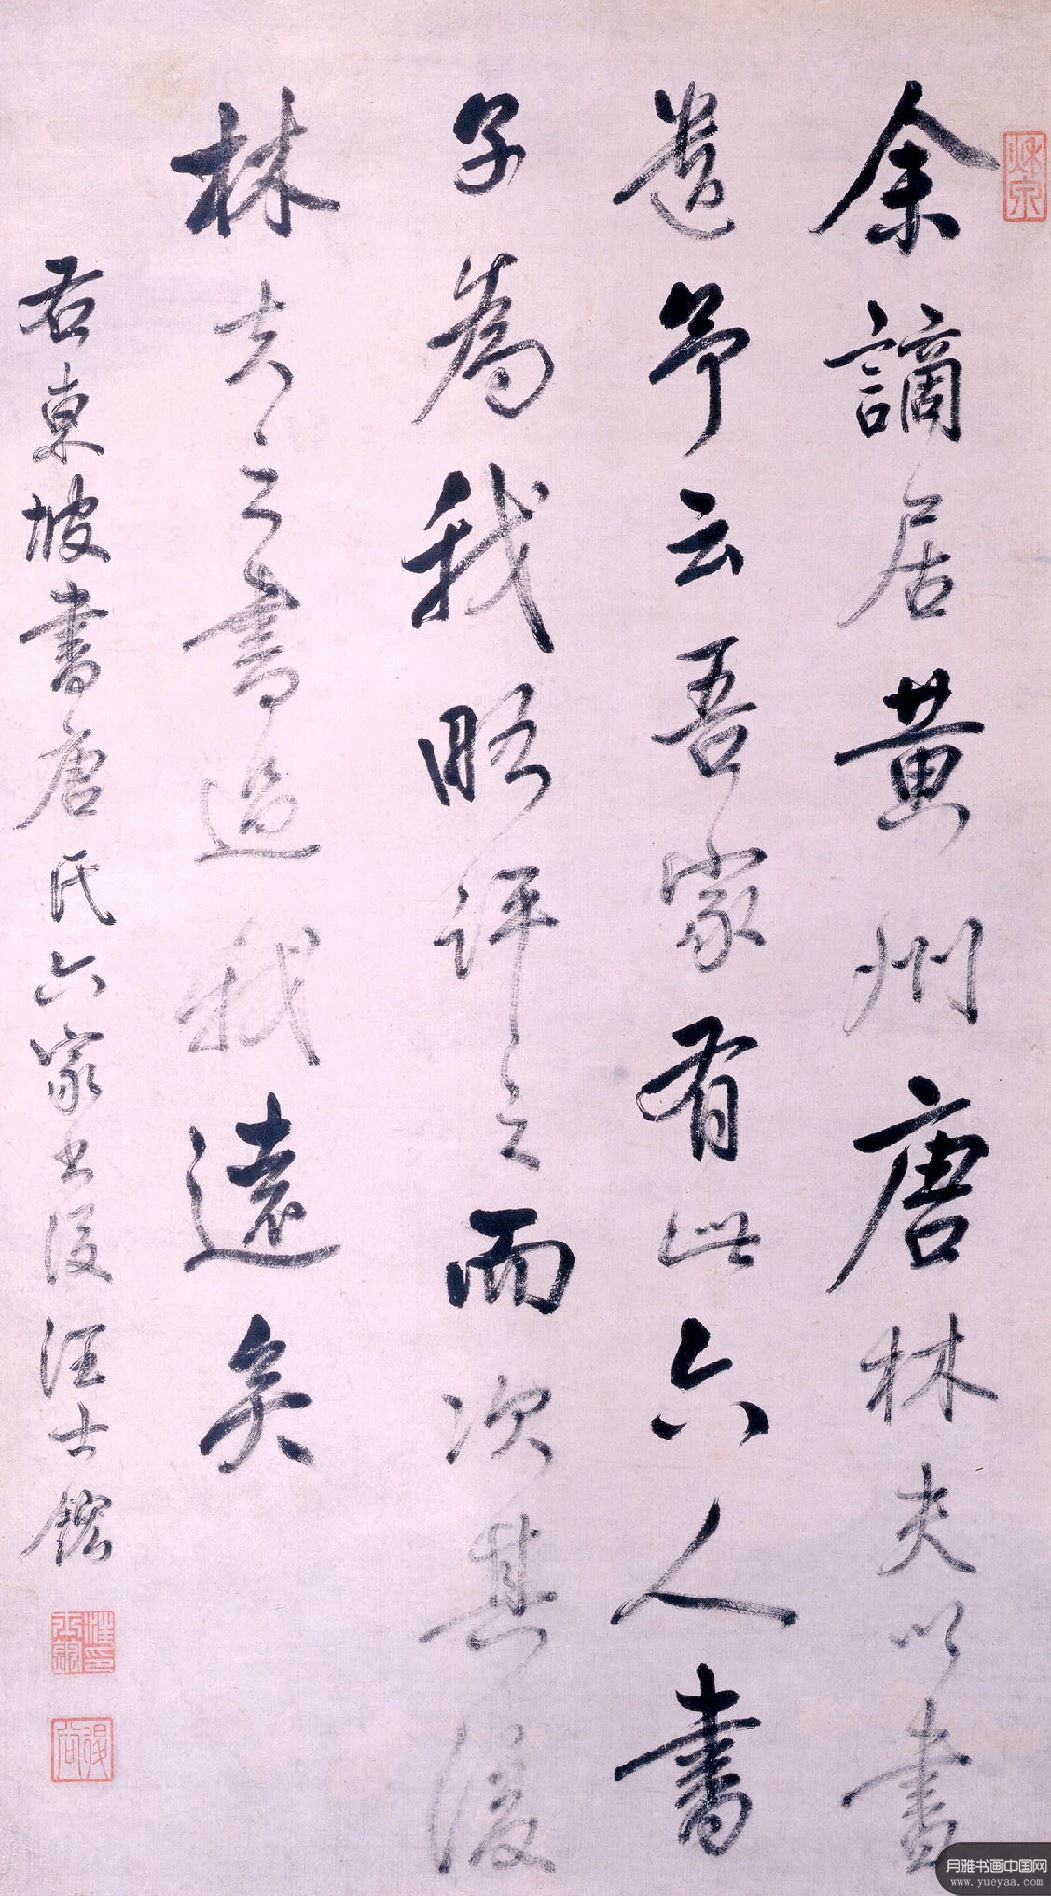 余謫居黃州唐林夫以書
遺予云吾家有此六人書
子為我略評之而次其後
林夫之書過我遠矣
右東坡書唐氏六家書後汪士鋐
月雅书画中国网
www.yueyaa.com